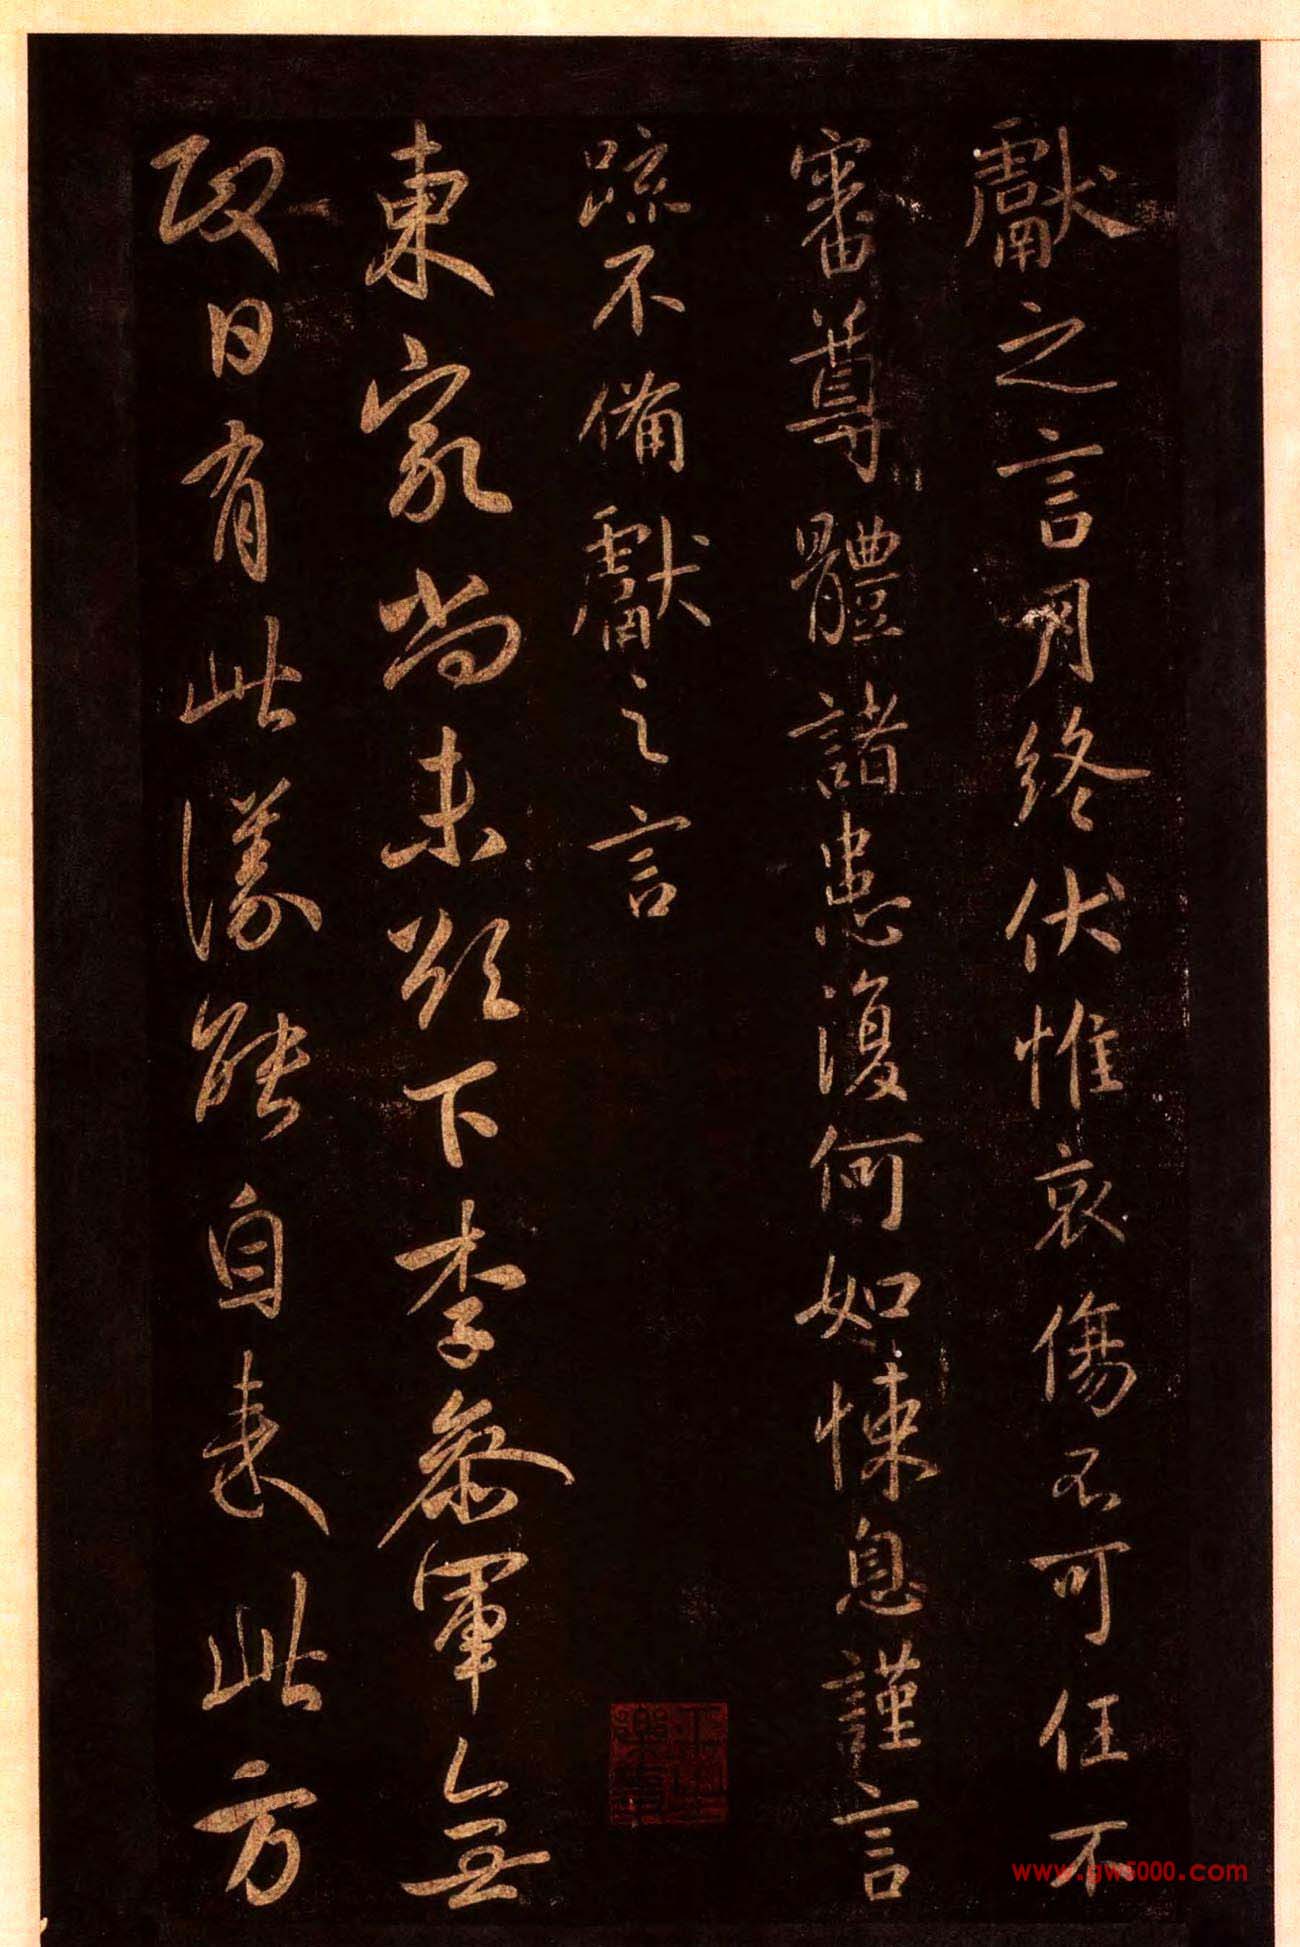 獻之言月終伏惟哀傷不可任不
審尊體諸患復何如悚息謹言
疏不備獻之言
東家尚未欲下李參軍無
取日有此議能自表此方
www.gw5000.com